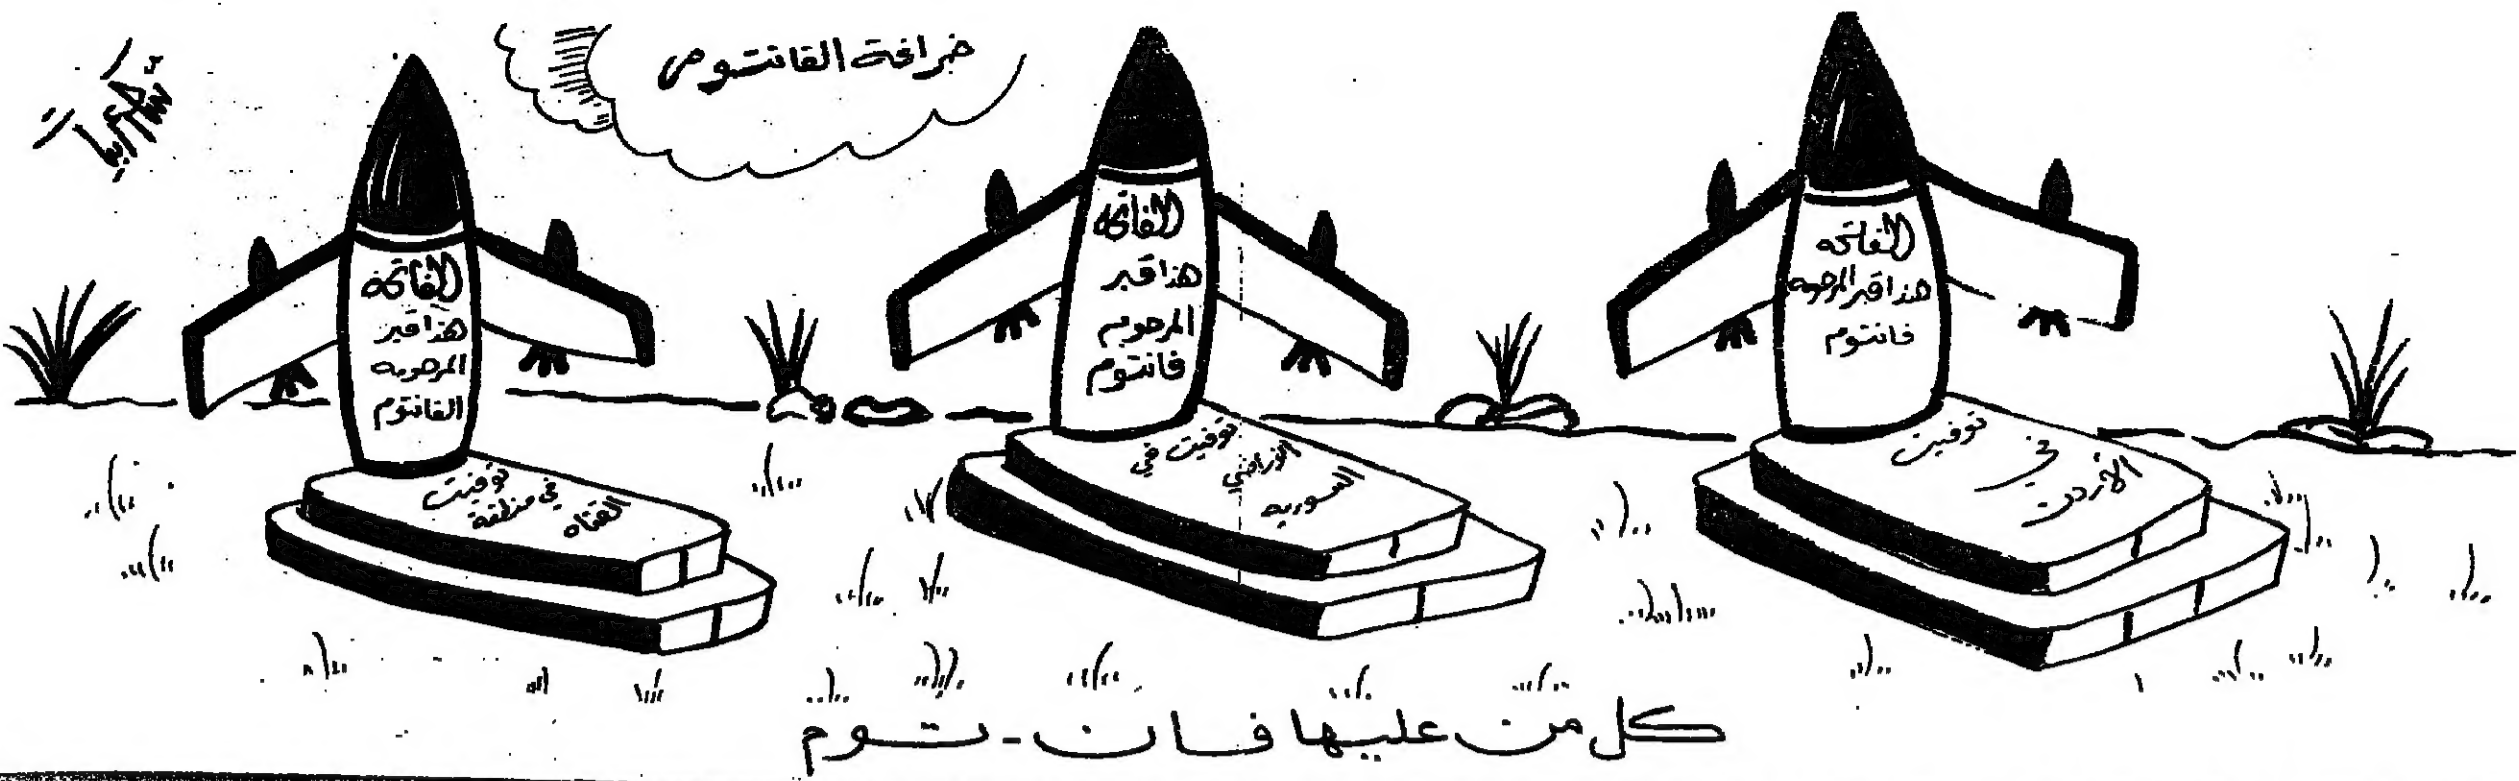 خرافة الفانتوم
الفاتحه
هذا قبر المرحومه
فانتوم
توفيت
في
الأردن
الفاتحة
هذا قبر
المرحوم
فانتوم
توفيت في
الاراضي
السوريه
الفاتحة
هذا قبر
المرحومه
الفانتوم
توفيت
في منطقة
القناه
كل من عليها فان - توم